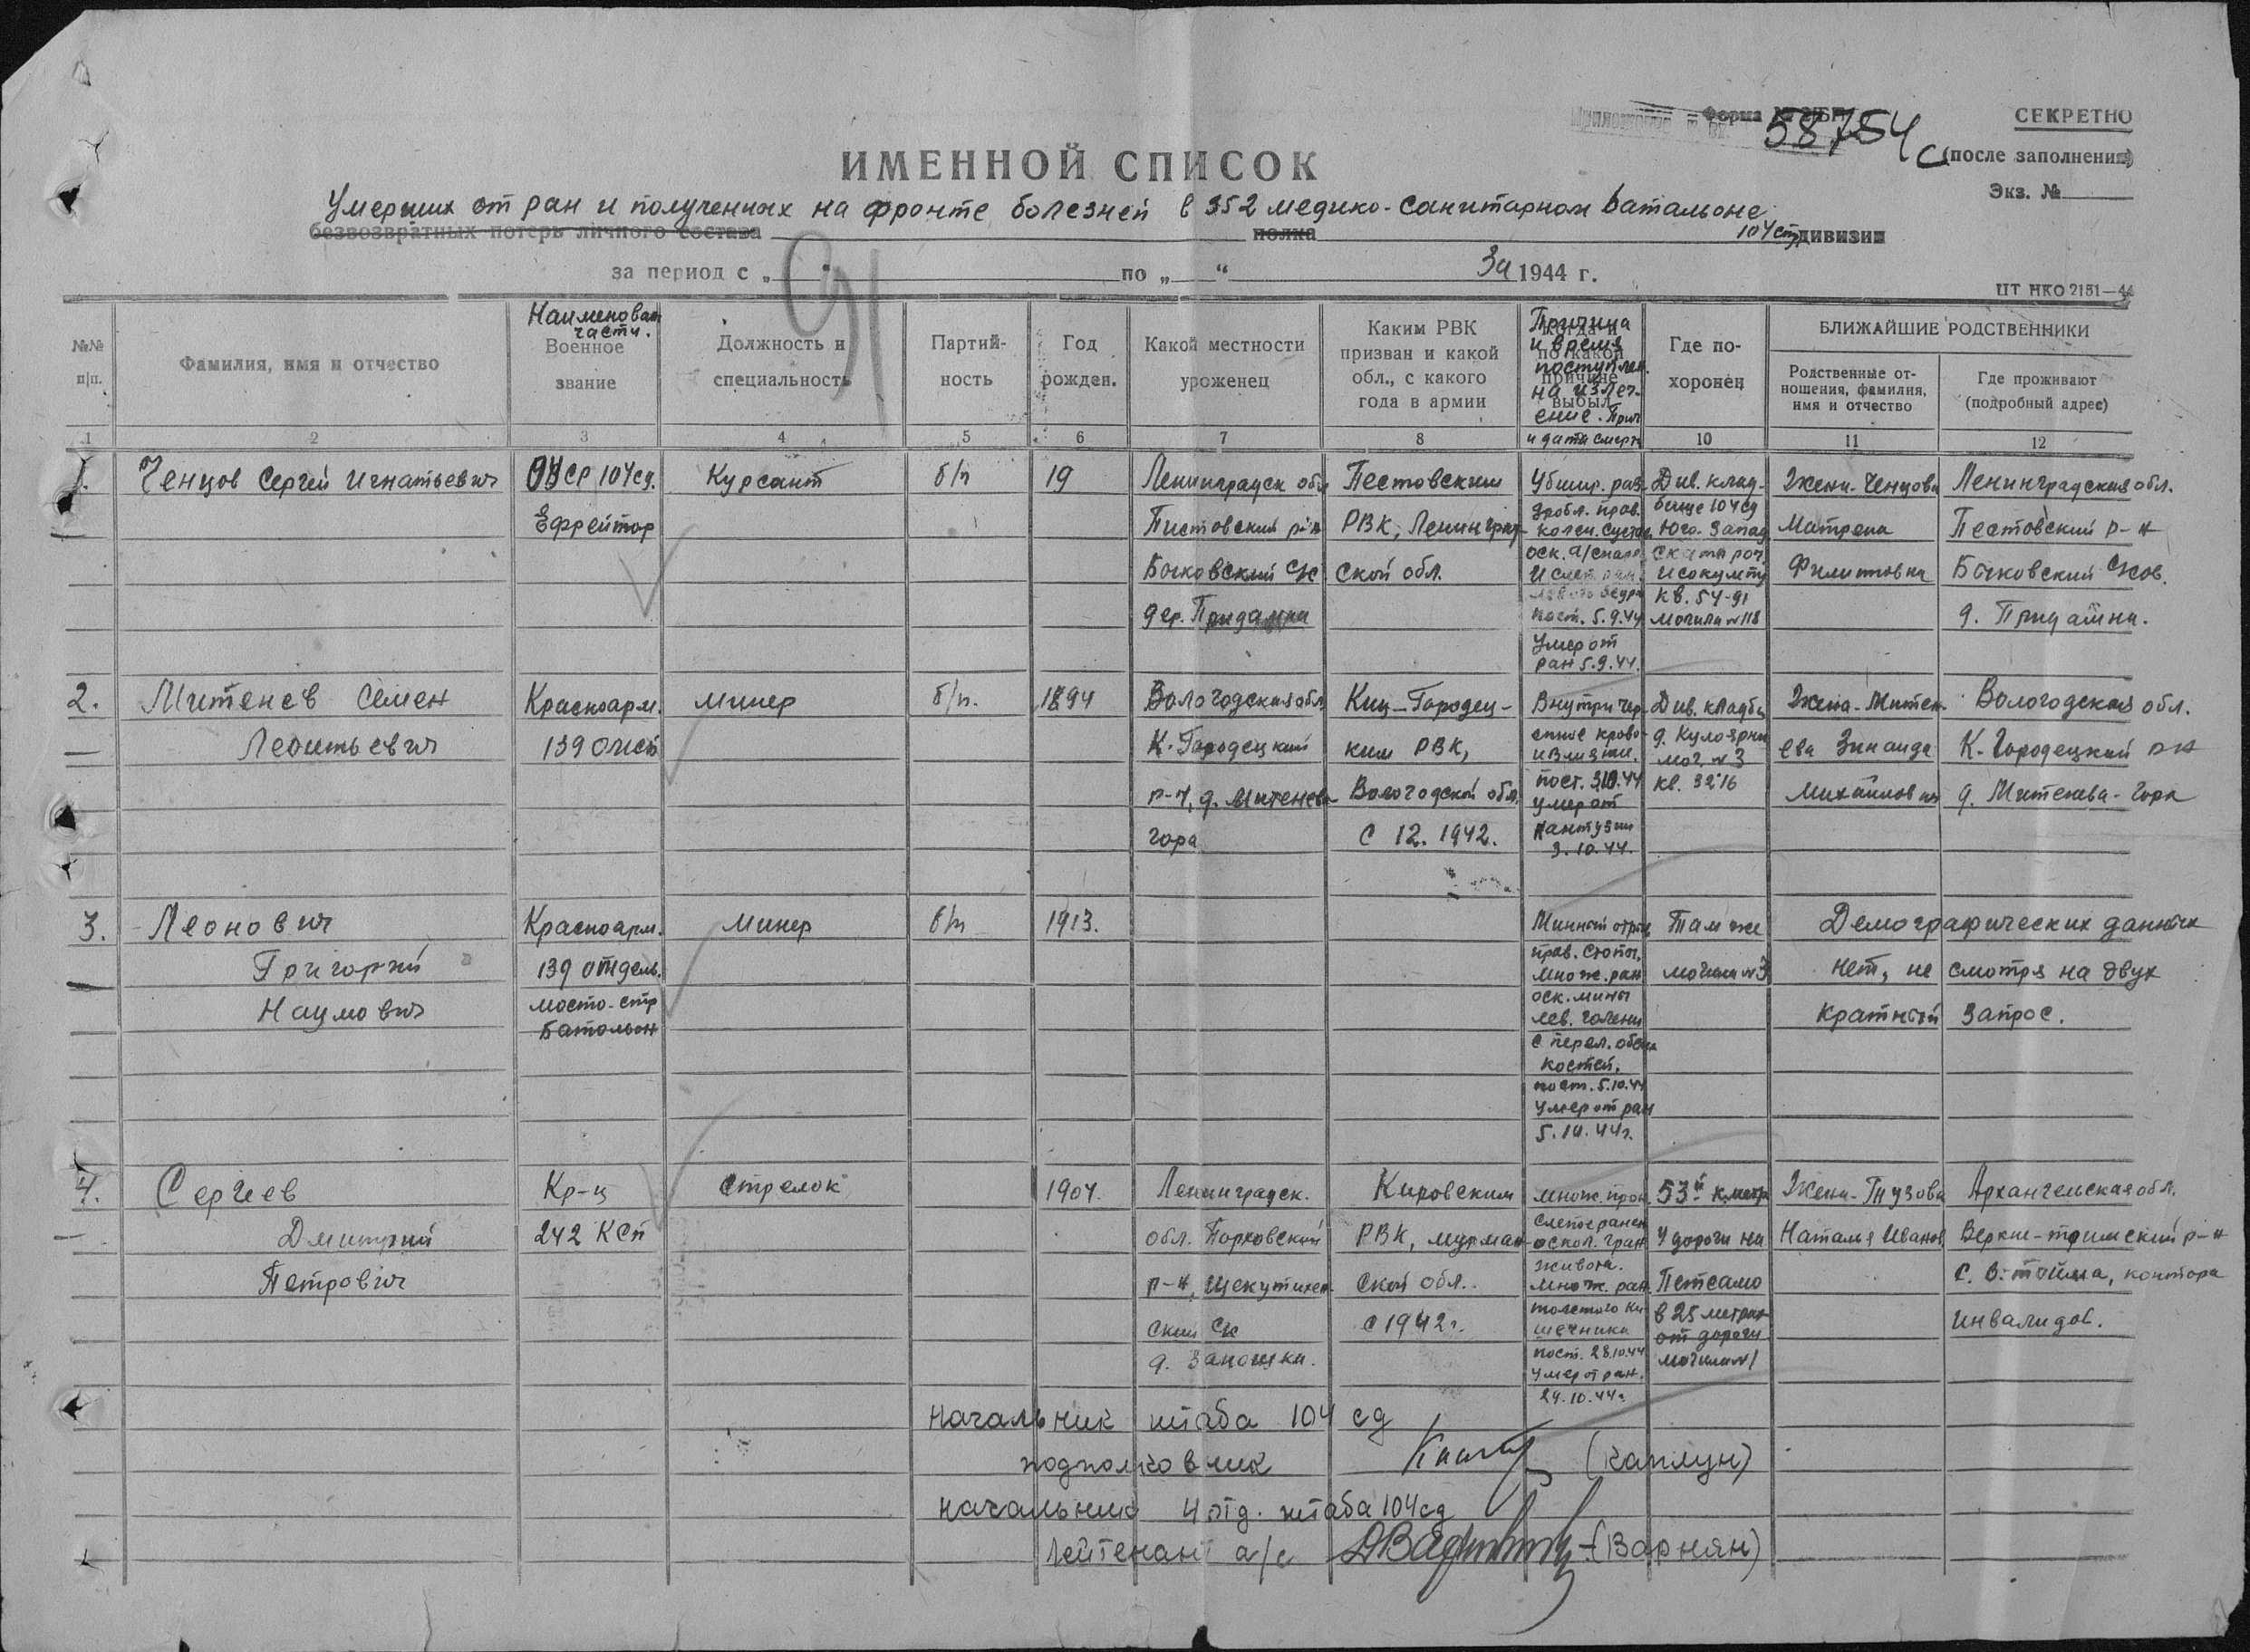 Форма №
58754с
СЕКРЕТНО
(после заполнения)
Экз. №
ИМЕННОЙ СПИСОК
Умерших от ран и полученных на фронте болезней в 352 медико-санитарном батальоне
безвозвратных потерь личного состава полка 104 сд дивизии
за период с „ “ по „ “ За 1944 г.
ЦТ НКО 2151—44
№№ п|п.
Фамилия, имя и отчество
Наименован части.
Военное звание
Должность и специальность
Партий-ность
Год рожден.
Какой местности уроженец
Каким РВК призван и какой обл., с какого года в армии
Когда и по какой причине выбыл
Причина и время поступлен. на излеч-ение. Прич и дата смерти
Где по-хоронен
БЛИЖАЙШИЕ РОДСТВЕННИКИ
Родственные от-ношения, фамилия, имя и отчество
Где проживают (подробный адрес)
1 2 3 4 5 6 7 8 10 11 12
1. Ченцов Сергей Игнатьевич
ср 104 сд.
Ефрейтор
Курсант
б/п
19
Ленинградск обл
Пестовский р-н
Бочковский с/с
дер.
Пестовским
РВК, Ленинград-
ской обл.
прав.
колен. сустав
пост. 5.9.44
Умер от
ран 5.9.44.
Див. клад-
бище 104 сд
Юго-запад
кв. 54-91
могила №118
Жена-Ченцова
Матрена
Филипповна
Ленинградская обл.
Пестовский р-н
д.
2. Митенев Семен
Леонтьевич
Красноарм.
139
минер
б/п.
1894
Вологодская обл.
К-Городецкий
р-н, д. Митенева
гора
Кич-Городец-
ким РВК,
Вологодской обл.
с 12. 1942.
Внутричер-
епное крово-
излияние.
умер от
контузии
3.10.44.
Див. кладби
мог. №3
кв. 3216
Жена-Митен-
ева Зинаида
Михайловна
Вологодская обл.
К-Городецкий р-н
д. Митенева-Гора
3. Леонович
Григорий
Наумович
Красноарм.
139 отдель.
мосто-стр
Батальон
Минер
б/п
1913.
Минный отрыв
прав. стопы,
множ. ран
оск. мины
лев. голени
с перел. обеих
костей.
пост. 5.10.44
Умер от ран
5.10.44г.
Там же
могила №3
Демографических данных
нет, не смотря на двух
кратный запрос.
4. Сергеев
Дмитрий
Петрович
Кр-ц
242 КСП
Стрелок
1904.
Ленинградск.
обл. Порховский
р-н,
ский с/с
д.
Кировским
РВК, мурман-
ской обл.
с 1942г.
множ.
слепое ранен
оскол. гран
живота.
множ. ран
толстого ки
шечника
пост. 28.10.44
Умер от ран.
29.10.44г
53й к.метр
у дороги на
Петсамо
в 25 метрах
от дороги
могила №1
Жена-
Наталья Иванов
Архангельская обл.
р-н
с. В-тойма, контора
инвалидов.
начальник штаба 104 сд
подполковник (Каплун)
начальник 4 отд. штаба 104 сд
лейтенант а/с (Варнян)